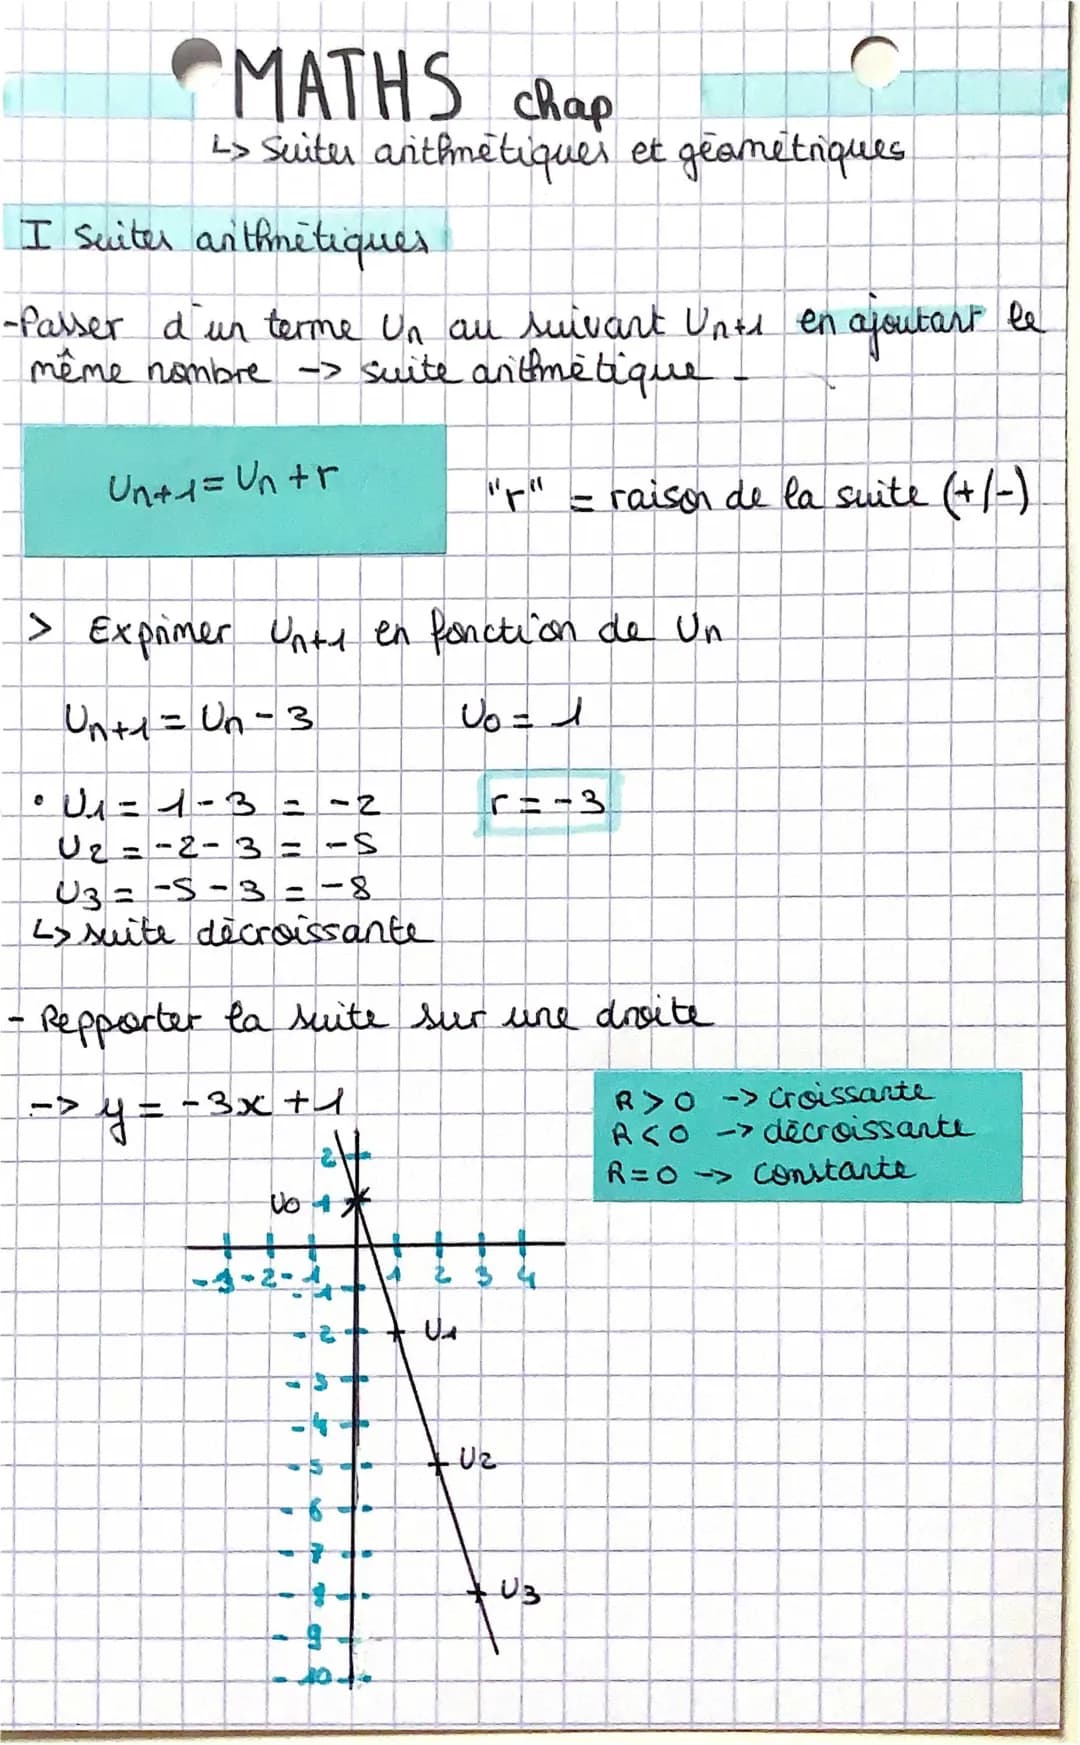 MATHS chap
↳ Suites arithmétiques et géométriques
I Suites arithmétiques
-Passer d'un terme Un au suivant Un+1 en ajoutant le
même nombre -> suite arithmétique.
Un+1 = Un + r
"r" = raison de la suite (+/-)
> Exprimer Un+1 en fonction de Un
Un+1 = Un - 3 U0 = 1
• U1 = 1 - 3 = -2 r = -3
U2 = -2 - 3 = -5
U3 = -5 - 3 = -8
↳ suite décroissante
- Repporter la suite sur une droite
-> y = -3x + 1
R > 0 -> croissante
R < 0 -> décroissante
R = 0 -> constante
2
U0 1
-3 -2 -1 1 2 3 4
-1
-2 U1
-3
-4
-5 U2
-6
-7
-8 U3
-9
-10